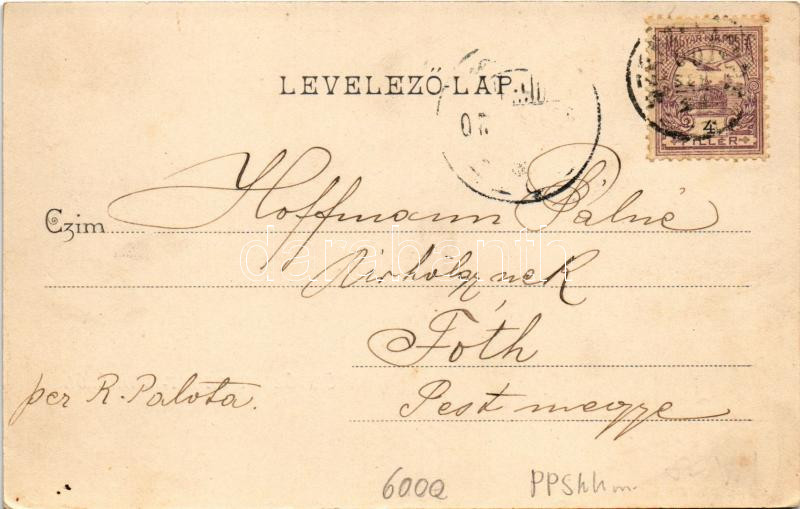 LEVELEZŐ-LAP.
MAGYAR KIR. POSTA
4
FILLÉR
Czim Hoffmann Pálné
Úrhölgynek
Fóth
per R. Palota.
Pest megye
darabanth
6000